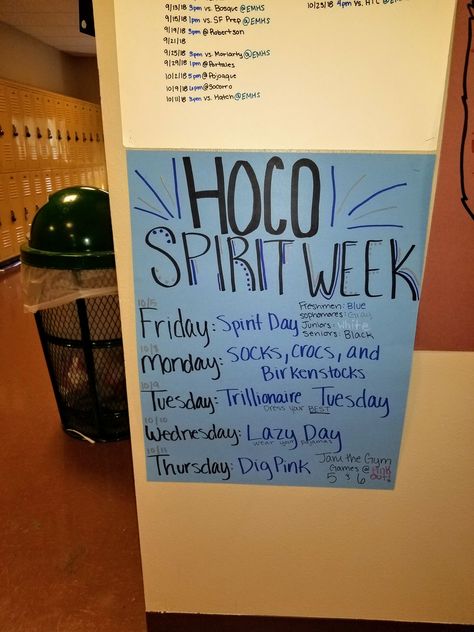 9/13/18 3pm vs. Bosque @EMHS
9/15/18 1pm vs. SF Prep @EMHS
9/19/18 3pm @Robertson
9/21/18
9/25/18 3pm vs. Moriarty @EMHS
9/29/18 1pm @Portales
10/2/18 5pm @Pojoaque
10/9/18 6pm @Socorro
10/11/18 3pm vs. Hatch @EMHS
10/23/18 4pm vs. HTC @EMHS
HOCO
SPIRIT WEEK
10/5
Friday: Spirit Day
Freshmen: Blue
sophomores: Gray
Juniors: White
Seniors: Black
10/8
Monday: SOCKS, CROCS, and
Birkenstocks
10/9
Tuesday: Trillionaire Tuesday
Dress your BEST
10/10
Wednesday: Lazy Day
wear your pajamas
10/11
Thursday: Dig Pink
Jam the Gym
Games @
5 & 6
PINK
OUT!